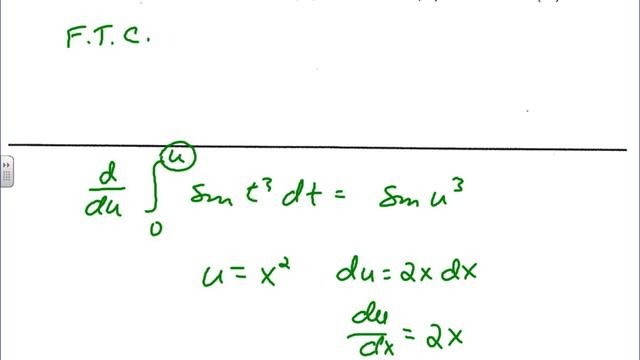 F.T.C.
d/du ∫₀ᵘ sin t³ dt = sin u³
u = x² du = 2x dx
du/dx = 2x